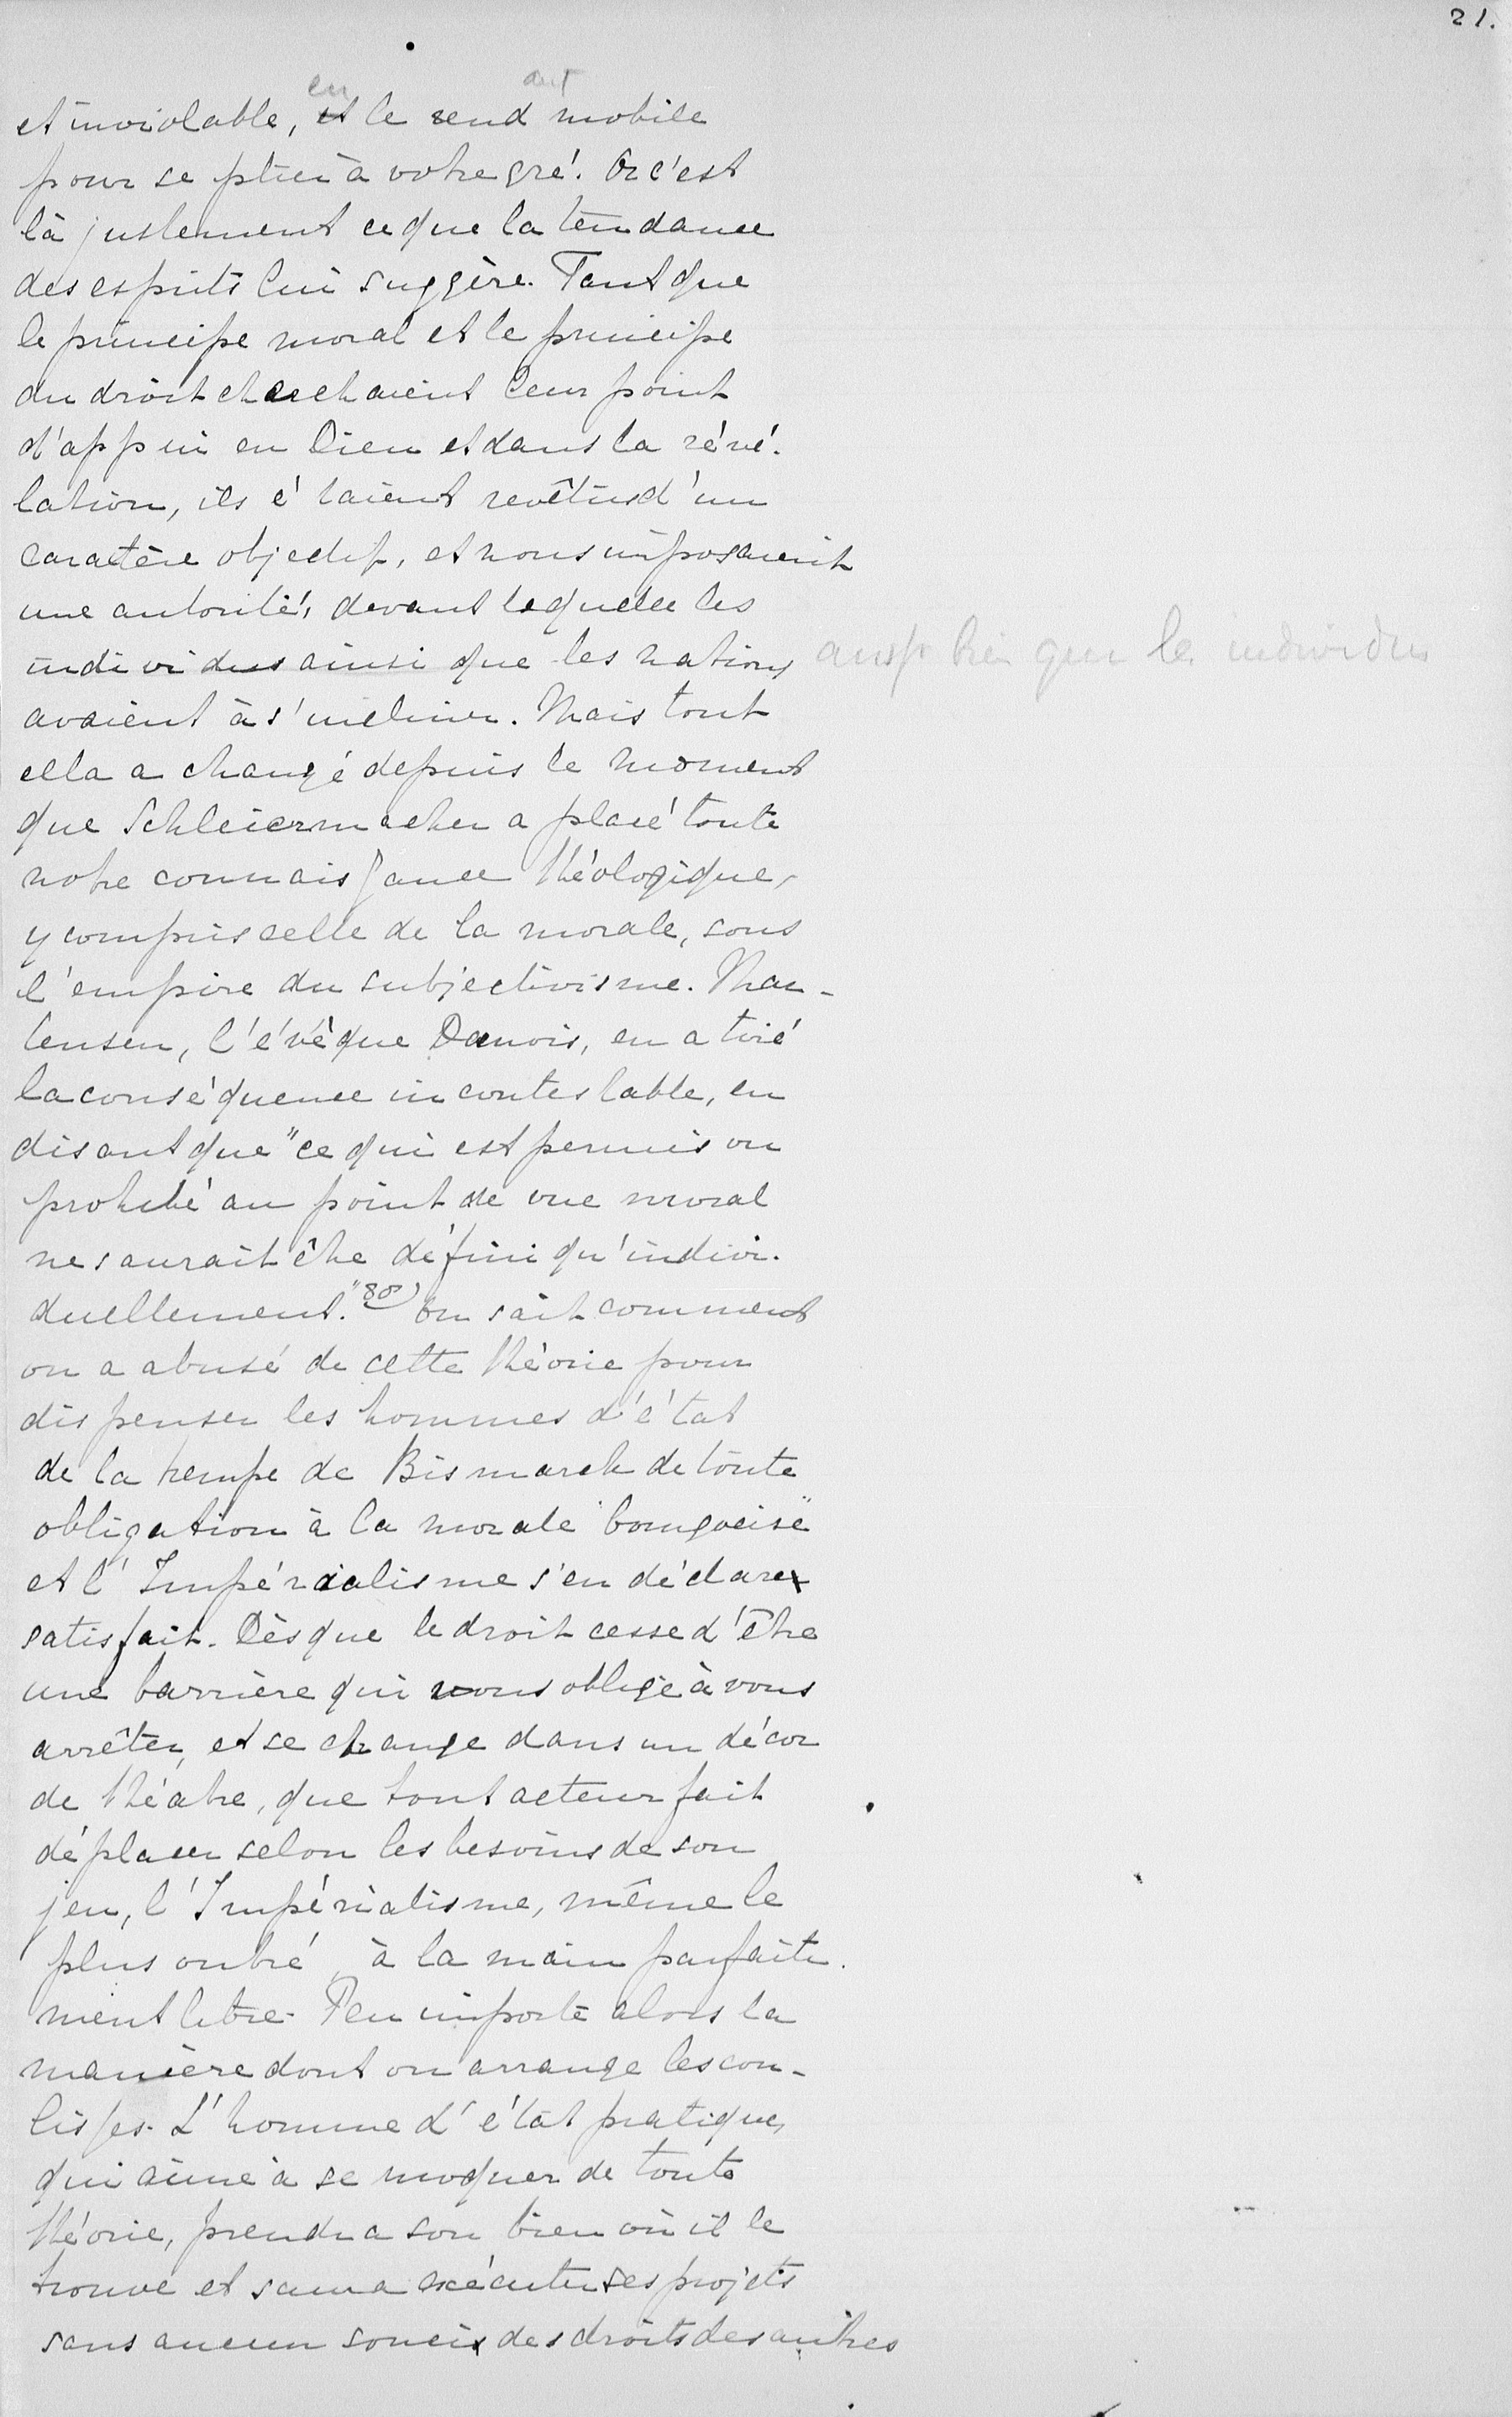 21.
en ant
et inviolable, et le rend mobile
pour se plier à votre gré. Or c'est
là justement ce que la tendance
des esprits lui suggère. Tant que
le principe moral et le principe
du droit cherchaient leur point
d'appui en Dieu et dans la révé-
lation, ils étaient revêtus d'un
caractère objectif, et nous imposaient
une autorité, devant laquelle les
individus ainsi que les nations aussi bien que les individus
avaient à s'incliner. Mais tout
cela a changé depuis le moment
que Schleiermacher a placé toute
notre connaissance théologique,
y compris celle de la morale, sous
l'empire du subjectivisme. Mar-
tensen, l'évêque Danois, en a tiré
la conséquence incontestable, en
disant que "ce qui est permis ou
prohibé au point de vue moral
ne saurait être défini qu'indivi-
duellement." 80) On sait comment
on a abusé de cette théorie pour
dispenser les hommes d'état
de la trempe de Bismarck de toute
obligation à la morale "bourgeoise"
et l'Impérialisme s'en déclare
satisfait. Dès que le droit cesse d'être
une barrière qui vous oblige à vous
arrêter, et se change dans un décor
de théatre, que tout acteur fait
déplacer selon les besoins de son
jeu, l'Impérialisme, même le
plus outré, à la main parfaite-
ment libre. Peu importe alors la
manière dont on arrange les cou-
lisses. L'homme d'état pratique,
qui aime à se moquer de toute
théorie, prendra son bien où il le
trouve et saura exécuter ses projets
sans aucun souci des droits des autres